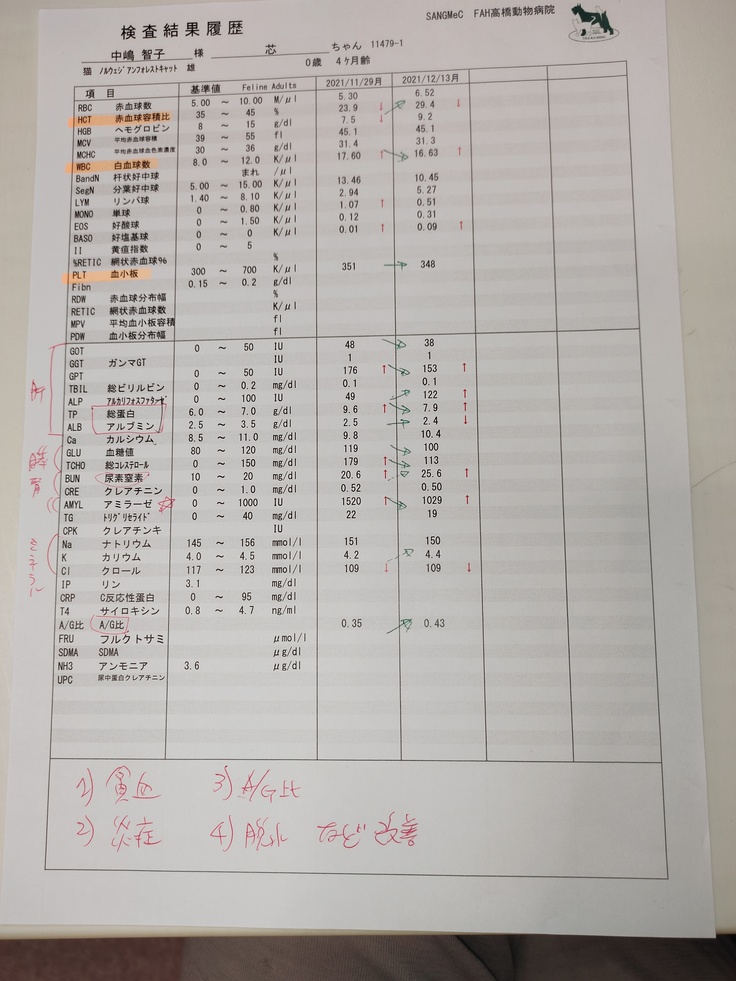 SANGMeC FAH高橋動物病院
検査結果履歴
中嶋 智子 様 芯 ちゃん 11479-1
猫 ノルウェジアンフォレストキャット 雄 0歳 4ヶ月齢
項 目 基準値 Feline Adults 2021/11/29月 2021/12/13月
RBC 赤血球数 5.00 ～ 10.00 M/μl 5.30 6.52
HCT 赤血球容積比 35 ～ 45 % 23.9 ↓ 29.4 ↓
HGB ヘモグロビン 8 ～ 15 g/dl 7.5 ↓ 9.2
MCV 平均赤血球容積 39 ～ 55 fl 45.1 45.1
MCHC 平均赤血球血色素濃度 30 ～ 36 g/dl 31.4 31.3
WBC 白血球数 8.0 ～ 12.0 K/μl 17.60 ↑ 16.63 ↑
BandN 杆状好中球 まれ /μl
SegN 分葉好中球 5.00 ～ 15.00 K/μl 13.46 10.45
LYM リンパ球 1.40 ～ 8.10 K/μl 2.94 5.27
MONO 単球 0 ～ 0.80 K/μl 1.07 ↑ 0.51
EOS 好酸球 0 ～ 1.50 K/μl 0.12 0.31
BASO 好塩基球 0 ～ 0 K/μl 0.01 ↑ 0.09 ↑
II 黄疸指数 0 ～ 5
%RETIC 網状赤血球% %
PLT 血小板 300 ～ 700 K/μl 351 348
Fibn 0.15 ～ 0.2 g/dl
RDW 赤血球分布幅 %
RETIC 網状赤血球数 K/μl
MPV 平均血小板容積 fl
PDW 血小板分布幅 fl
GOT 0 ～ 50 IU 48 38
GGT ガンマGT IU 1 1
GPT 0 ～ 50 IU 176 ↑ 153 ↑
TBIL 総ビリルビン 0 ～ 0.2 mg/dl 0.1 0.1
ALP アルカリフォスファターゼ 0 ～ 100 IU 49 122 ↑
TP 総蛋白 6.0 ～ 7.0 g/dl 9.6 ↑ 7.9 ↑
ALB アルブミン 2.5 ～ 3.5 g/dl 2.5 2.4 ↓
Ca カルシウム 8.5 ～ 11.0 mg/dl 9.8 10.4
GLU 血糖値 80 ～ 120 mg/dl 119 100
TCHO 総コレステロール 0 ～ 150 mg/dl 179 ↑ 113
BUN 尿素窒素 10 ～ 20 mg/dl 20.6 ↑ 25.6 ↑
CRE クレアチニン 0 ～ 1.0 mg/dl 0.52 0.50
AMYL アミラーゼ 0 ～ 1000 IU 1520 ↑ 1029 ↑
TG トリグリセライド 0 ～ 40 mg/dl 22 19
CPK クレアチンキ IU
Na ナトリウム 145 ～ 156 mmol/l 151 150
K カリウム 4.0 ～ 4.5 mmol/l 4.2 4.4
Cl クロール 117 ～ 123 mmol/l 109 ↓ 109 ↓
IP リン 3.1 mg/dl
CRP C反応性蛋白 0 ～ 95 mg/dl
T4 サイロキシン 0.8 ～ 4.7 ng/ml
A/G比 A/G比 0.35 0.43
FRU フルクトサミ μmol/l
SDMA SDMA μg/dl
NH3 アンモニア 3.6 μg/dl
UPC 尿中蛋白クレアチニン
肝
膵
腎
ミネラル
1) 貧血 3) A/G比
2) 炎症 4) 脱水 など 改善